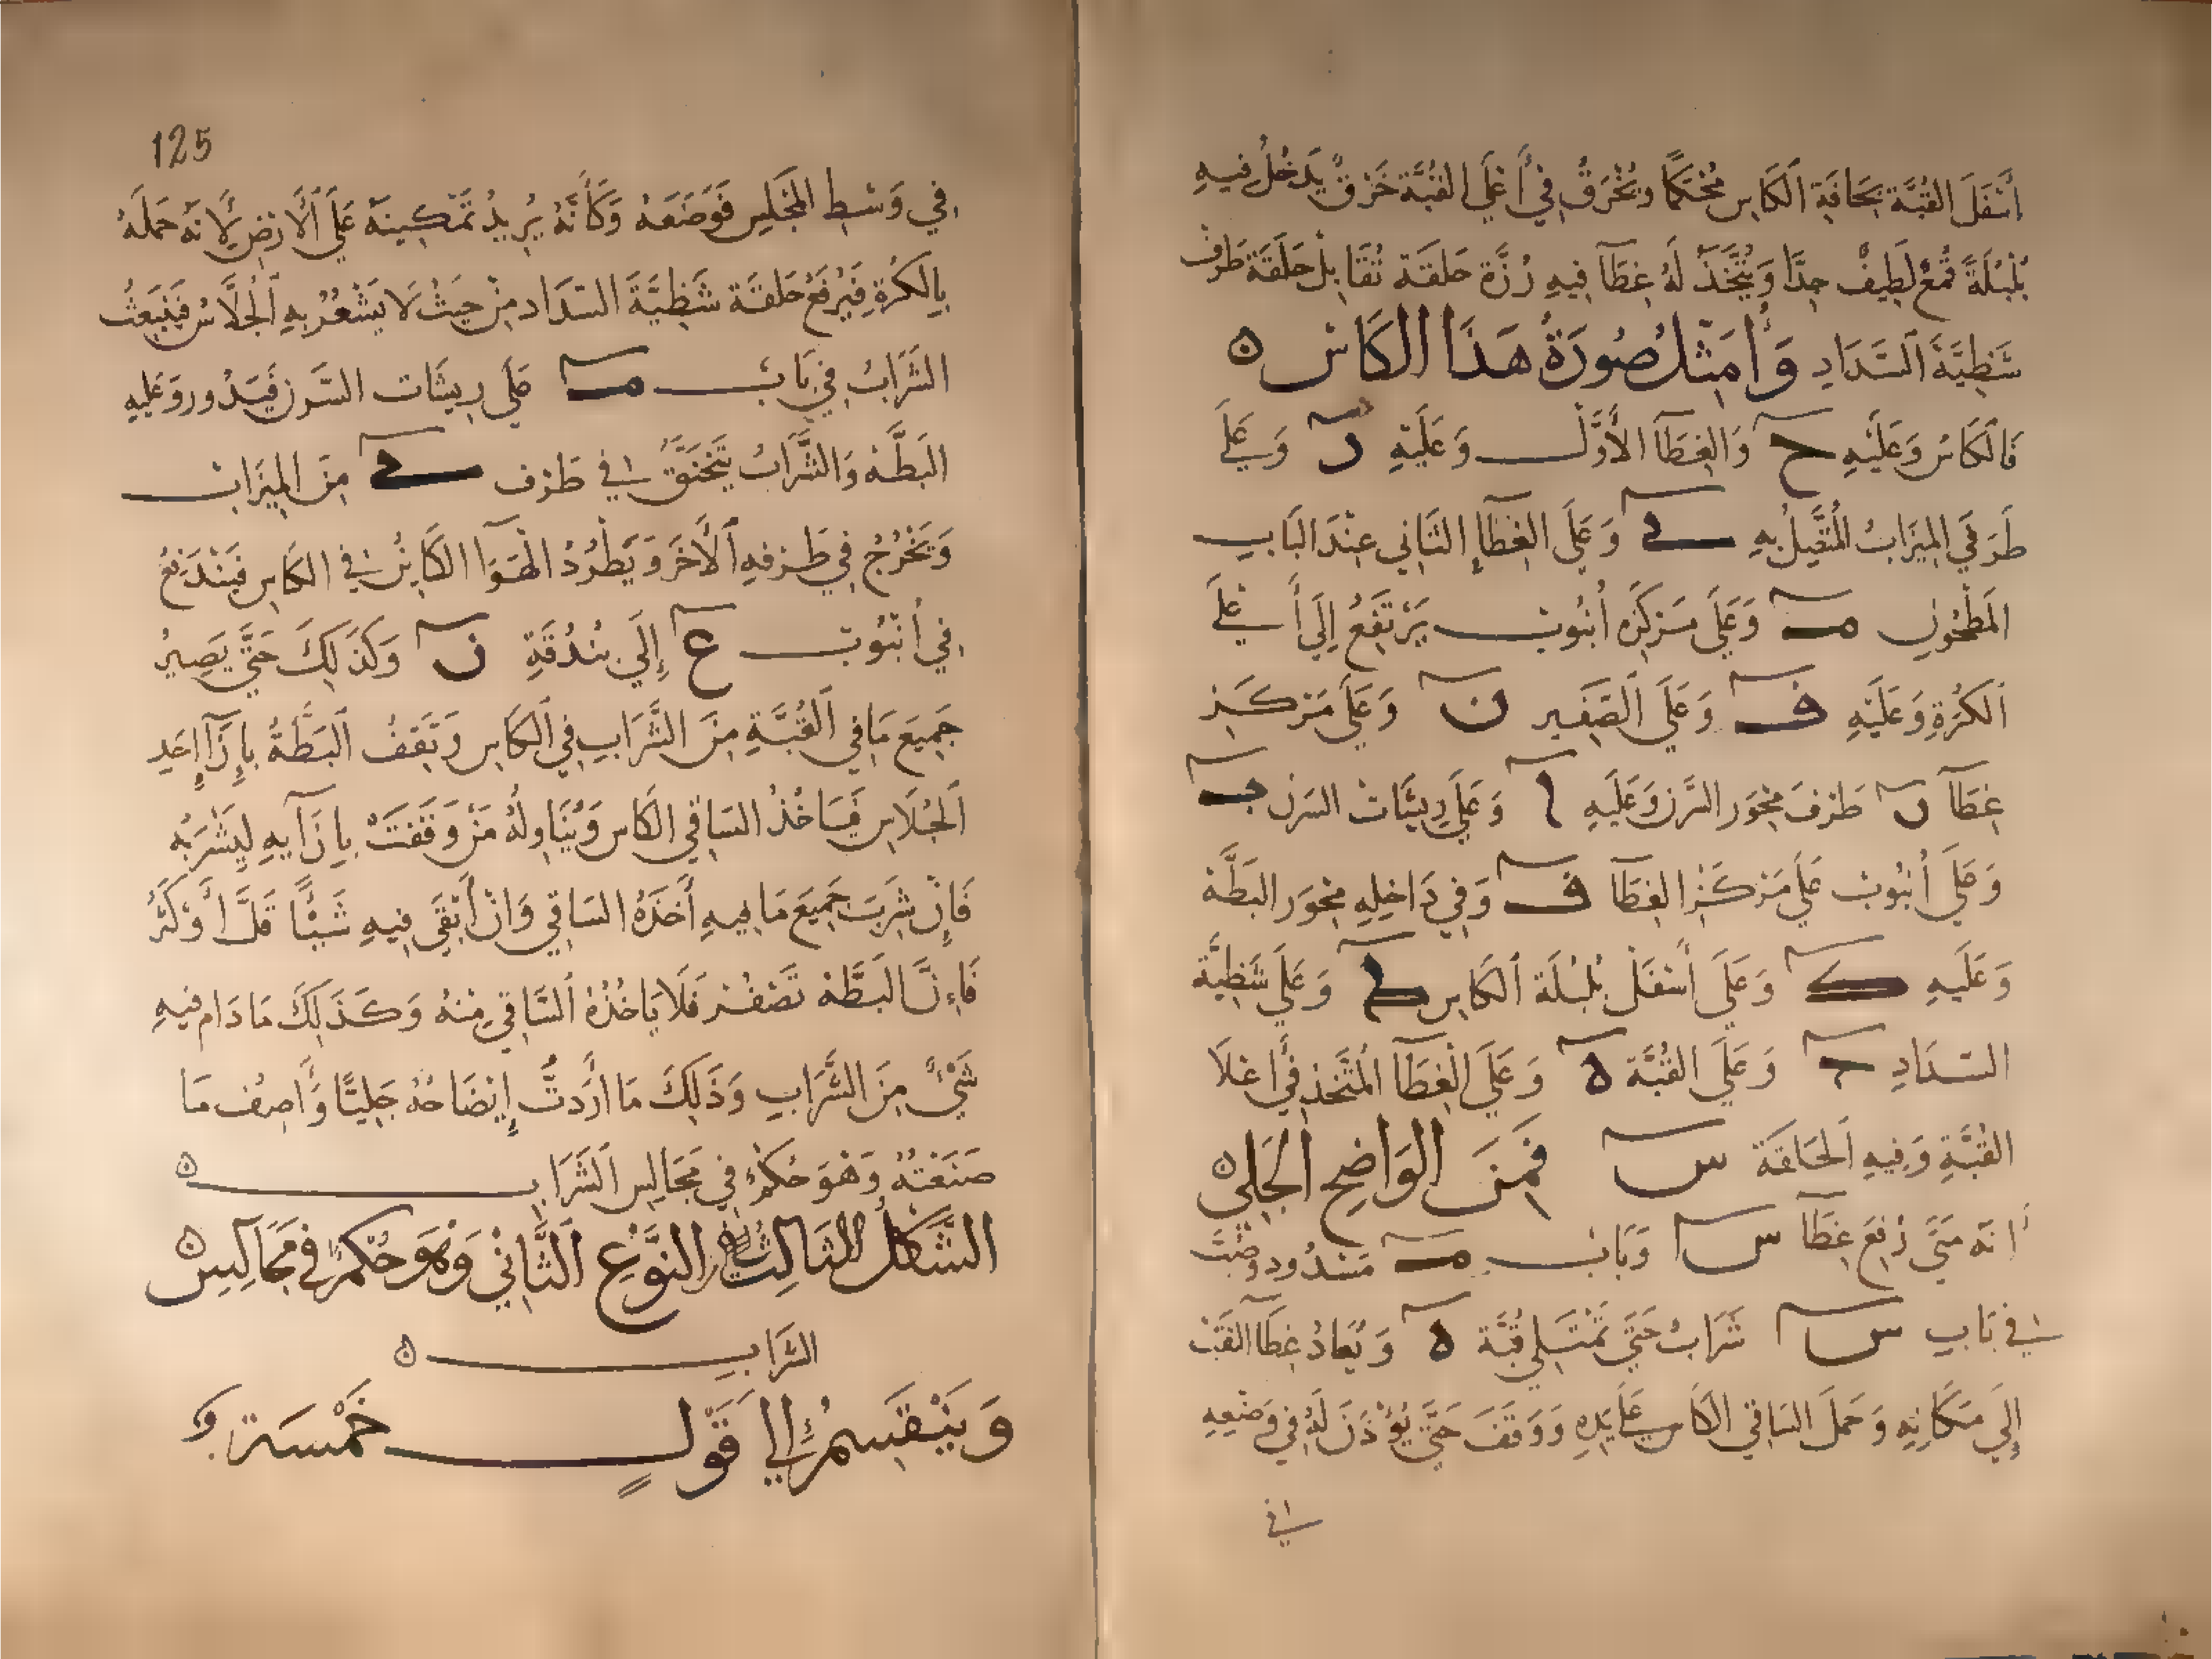 أَسْفَلَ القُبَّة بحَافَةِ الكَاسِ مُحْكَمًا ويُخْرَقُ فِي أَعْلَى القُبَّة خَرْقٌ يَدخُلُ فيهِ
بُلْبُلَةُ قُمْعٍ لَطِيفٍ جِدًّا وَيُتَّخَذُ لَهُ غِطَآ فِيهِ رُزَّة حَلقَة تُقَابِلُ حَلَقَةَ طَرَفِ
شَظِيَّةَ السَّدَادِ وَأُمَثِّلُ صُورَةُ هَذَا الكَاسْ ه
فَالكَاسُ وَعَلَيْهِ ح وَالغِطَآ الأَوَّلْ وَعَلَيْهِ ر وَعَلَى
طَرَفَي المِيزَابُ المُتَّصِلُ بِهِ ى وَعَلَى الغِطَآ الثَانِي عِنْدَ البَابِ
المَطْحُونِ مـ وَعَلَى مَرْكَزِه أُنبُوبْ يَرْتَفِعُ إِلَى أَعْلَى
الكُرَةِ وَعَلَيْهِ ف وَعَلَى الصَّفِير ن وَعَلَى مَرْكَزِ
غِطَآ ن طَرْفَ مِحْوَر السَّرن وَعَلَيهِ ا وَعَلَى رِيشَات السَرن ب
وَعَلَى أُنبُوب عَلَى مَرْكَزِ الغِطَآ ف وَفِي دَاخِلِهِ مِحْوَر البَطَّة
وَعَلَيهِ ك وَعَلَى أَسْفَلْ بُلْبُلَة الكَاسِ ط وَعَلَى شَظِيَّة
السَّدَادِ ح وَعَلَى القُبَّة ه وَعَلَى الْغِطَآ المُتَّخذِ فِي أَعْلَا
القُبَّةِ وَفِيهِ الحَلقَة س فَمِنَ الوَاضِحِ الجَلِي ه
أَنه مَتَى رُفِعَ غِطَآ س وَبَابْ مـ مَسْدُود وَصُبَّ
فِي بَابِ س شَرَابٌ حَتَّى تَمْتَلِي قُبَّة ه وَيُعَادُ غِطَآ القُبَّ
إِلَى مَكَانِهِ وَحَمَلَ السَاقِي الكَاس عَلَى يَدِهِ وَوَقَفَ حَتَّى يُؤْذَنَ لَهُ فِي وَضْعِهِ
في
125
فِي وَسْطِ المَجْلِسِ فَوَضَعَهُ وَكَأَنَّهُ يُرِيدُ تَمْكِينَهُ عَلَى الأَرْضِ لأَنَّهُ حَمَلَهُ
بِالكُرَةِ فَيَرْفَعُ حَلقَة شَظِيَّةَ السَّدَاد مِنْ حَيثُ لَا يَشْعُرُ بِهِ الجُلَّاسُ فَيَنبَعِثُ
الشَرَابُ فِي بَابْ مـ عَلَى رِيشَات السَّرن فَيَدُور وَعَلَيهِ
البَطَّة وَالشَّرَابُ يَتَخَنَّقُ فِي طَرْف ى مِنَ المِيزَابْ
وَيَخْرُجُ فِي طَرْفِهِ الآخَر وَيَطْرُدُ الهَوَا الكَايِن فِي الكَاسِ فَيَنْدَفِعُ
فِي أُنْبُوبْ ع إِلَى بُنْدُقَةِ ن وَكَذَلِكَ حَتَّى يَصِيرُ
جَمِيعَ مَا فِي القُبَّةِ مِنَ الشَّرَابِ فِي الكَاسِ وَتَقِفُ البَطَّةُ بِإِزَآ أَحَدِ
الجُلَاسِ فَيَاخُذُ السَاقِي الكَاس وَيُنَاوِلُهُ مَنْ وَقَفَتْ بِإِزَآيهِ لِيَشْرَبَهُ
فَإِنْ شَرِبَ جَمِيعَ مَا فِيهِ أَخَذَهُ السَاقِي وَانْ أَبْقَى فِيهِ شَيْئًا قَلَّ أَوْ كَثُرَ
فَاءِنَّ البَطَّةْ تَصْفُرْ فَلَا يَاخُذُهُ السَّاقِي مِنْهُ وَكَذَلِكَ مَا دَام فِيهِ
شَيْءٌ مِنَ الشَّرَابِ وَذَلِكَ مَا أَرَدتُّ إِيْضَاحُهُ جَلِيًّا وَأَصِفُ مَا
صَنَعْتُهُ وَهْوَ حَكَمٌ فِي مَجَالِسِ الشَرَابِ ه
الشَّكْلُ الثَالِثُ مِنَ النَّوْعِ الثَّانِيْ وَهْوَ حَكَمٌ فِي مَجَالِسْ ه
الشَرَابِ ه
وَيَنْقَسِمُ إِلَى فُصُولٍ خَمْسَة